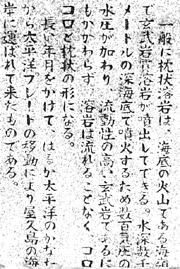 一般に枕状溶岩は、海底の火山である海嶺
で玄武岩質溶岩が噴出してできる。水深数千
メートルの深海底で噴火するため数百気圧の
水圧が加わり、流動性の高い玄武岩であるに
もかかわらず、溶岩は流れることなく、コロ
コロと枕状の形になる。
長い年月をかけて、はるか太平洋のかなた
から太平洋プレートの移動により屋久島の海
岸に運ばれて来たものである。